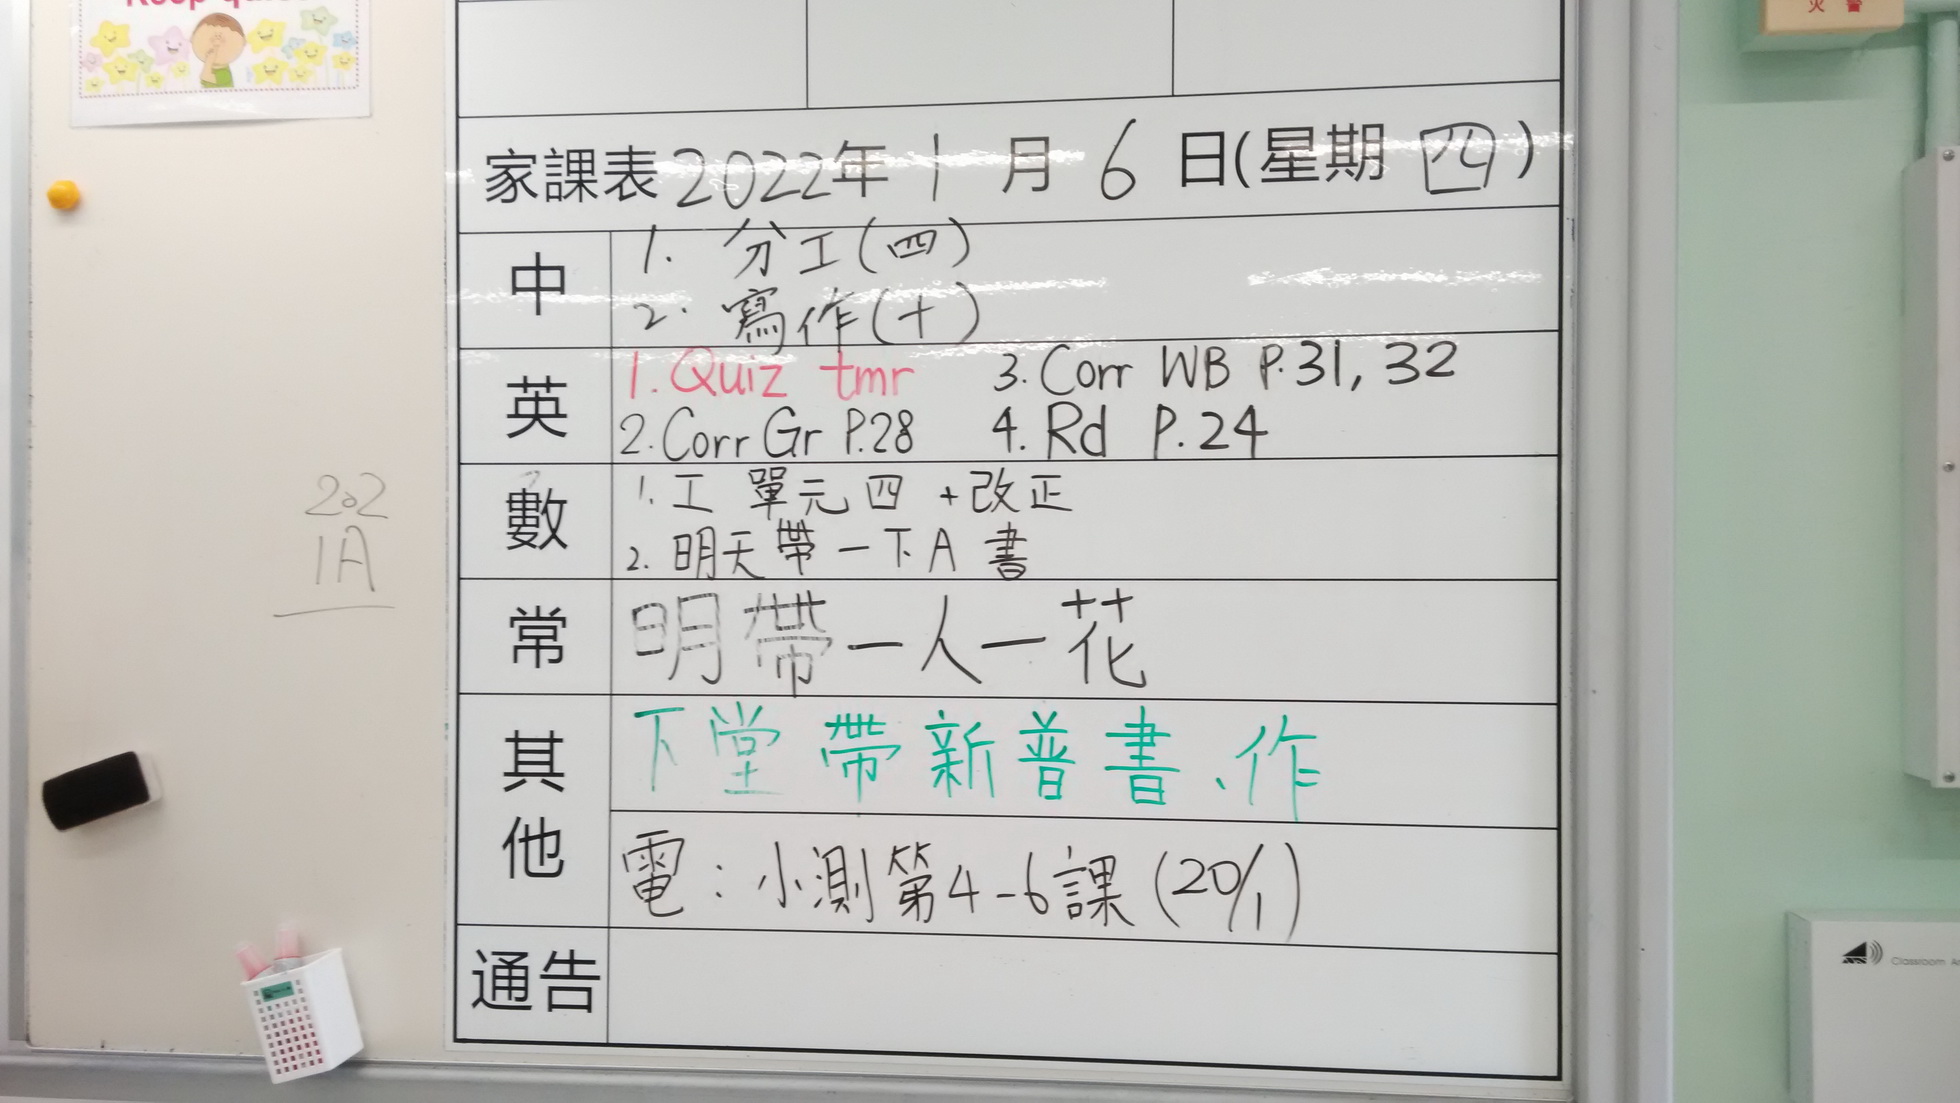 家課表 2022年 1 月 6 日(星期 四)
中
1. 分工(四)
2. 寫作(十)
英
1. Quiz tmr 3. Corr WB P.31, 32
2. Corr Gr P.28 4. Rd P.24
數
1. 工 單元四 + 改正
2. 明天帶一下A 書
常
明帶一人一花
其他
下堂帶新普書、作
電：小測第4-6課 (20/1)
通告
202
1A
火 警
Classroom